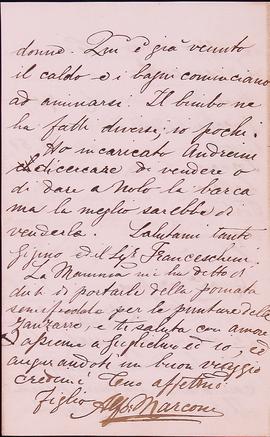 donne. Qui è già venuto
il caldo e i bagni cominciano
ad animarsi. Il bimbo ne
ha fatti diversi, io pochi.
Ho incaricato Andreini
di cercare di vendere o
di dare a nolo la barca
ma la meglio sarebbe di
venderla. Salutami tanto
Gigino, ed il Sig. Franceschini.
La Mamma mi ha detto di
dirti di portarle della pomata
per le punture delle
Zanzare, e ti saluta con amore
assieme a Guglielmo ed io, ed
augurandoti un buon viaggio
credimi Tuo affettmo
Figlio Alfo Marconi